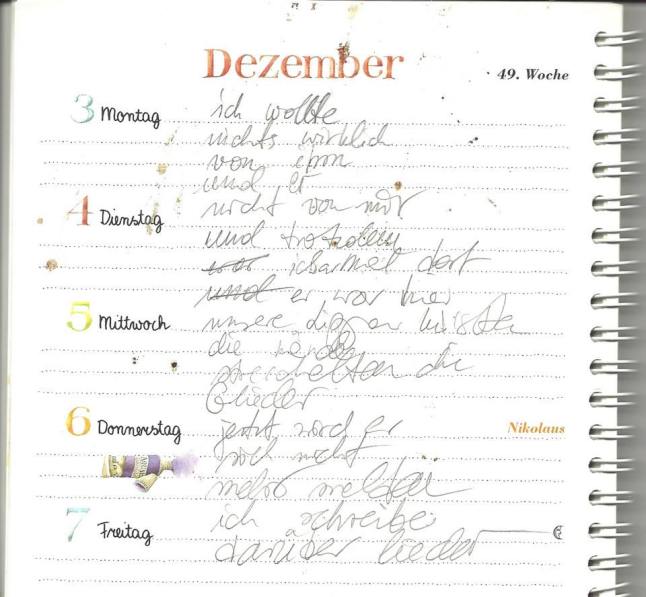 Dezember
49. Woche
3 Montag ich wollte
nichts wirklich
von ihm
und er
4 Dienstag nicht von mir
und trotzdem
war ich dort
und er war hier
5 Mittwoch unsere küssten
die münder
streichelten die
Glieder
6 Donnerstag jetzt wird er Nikolaus
sich nicht
mehr melden
7 Freitag ich schreibe
darüber lieder